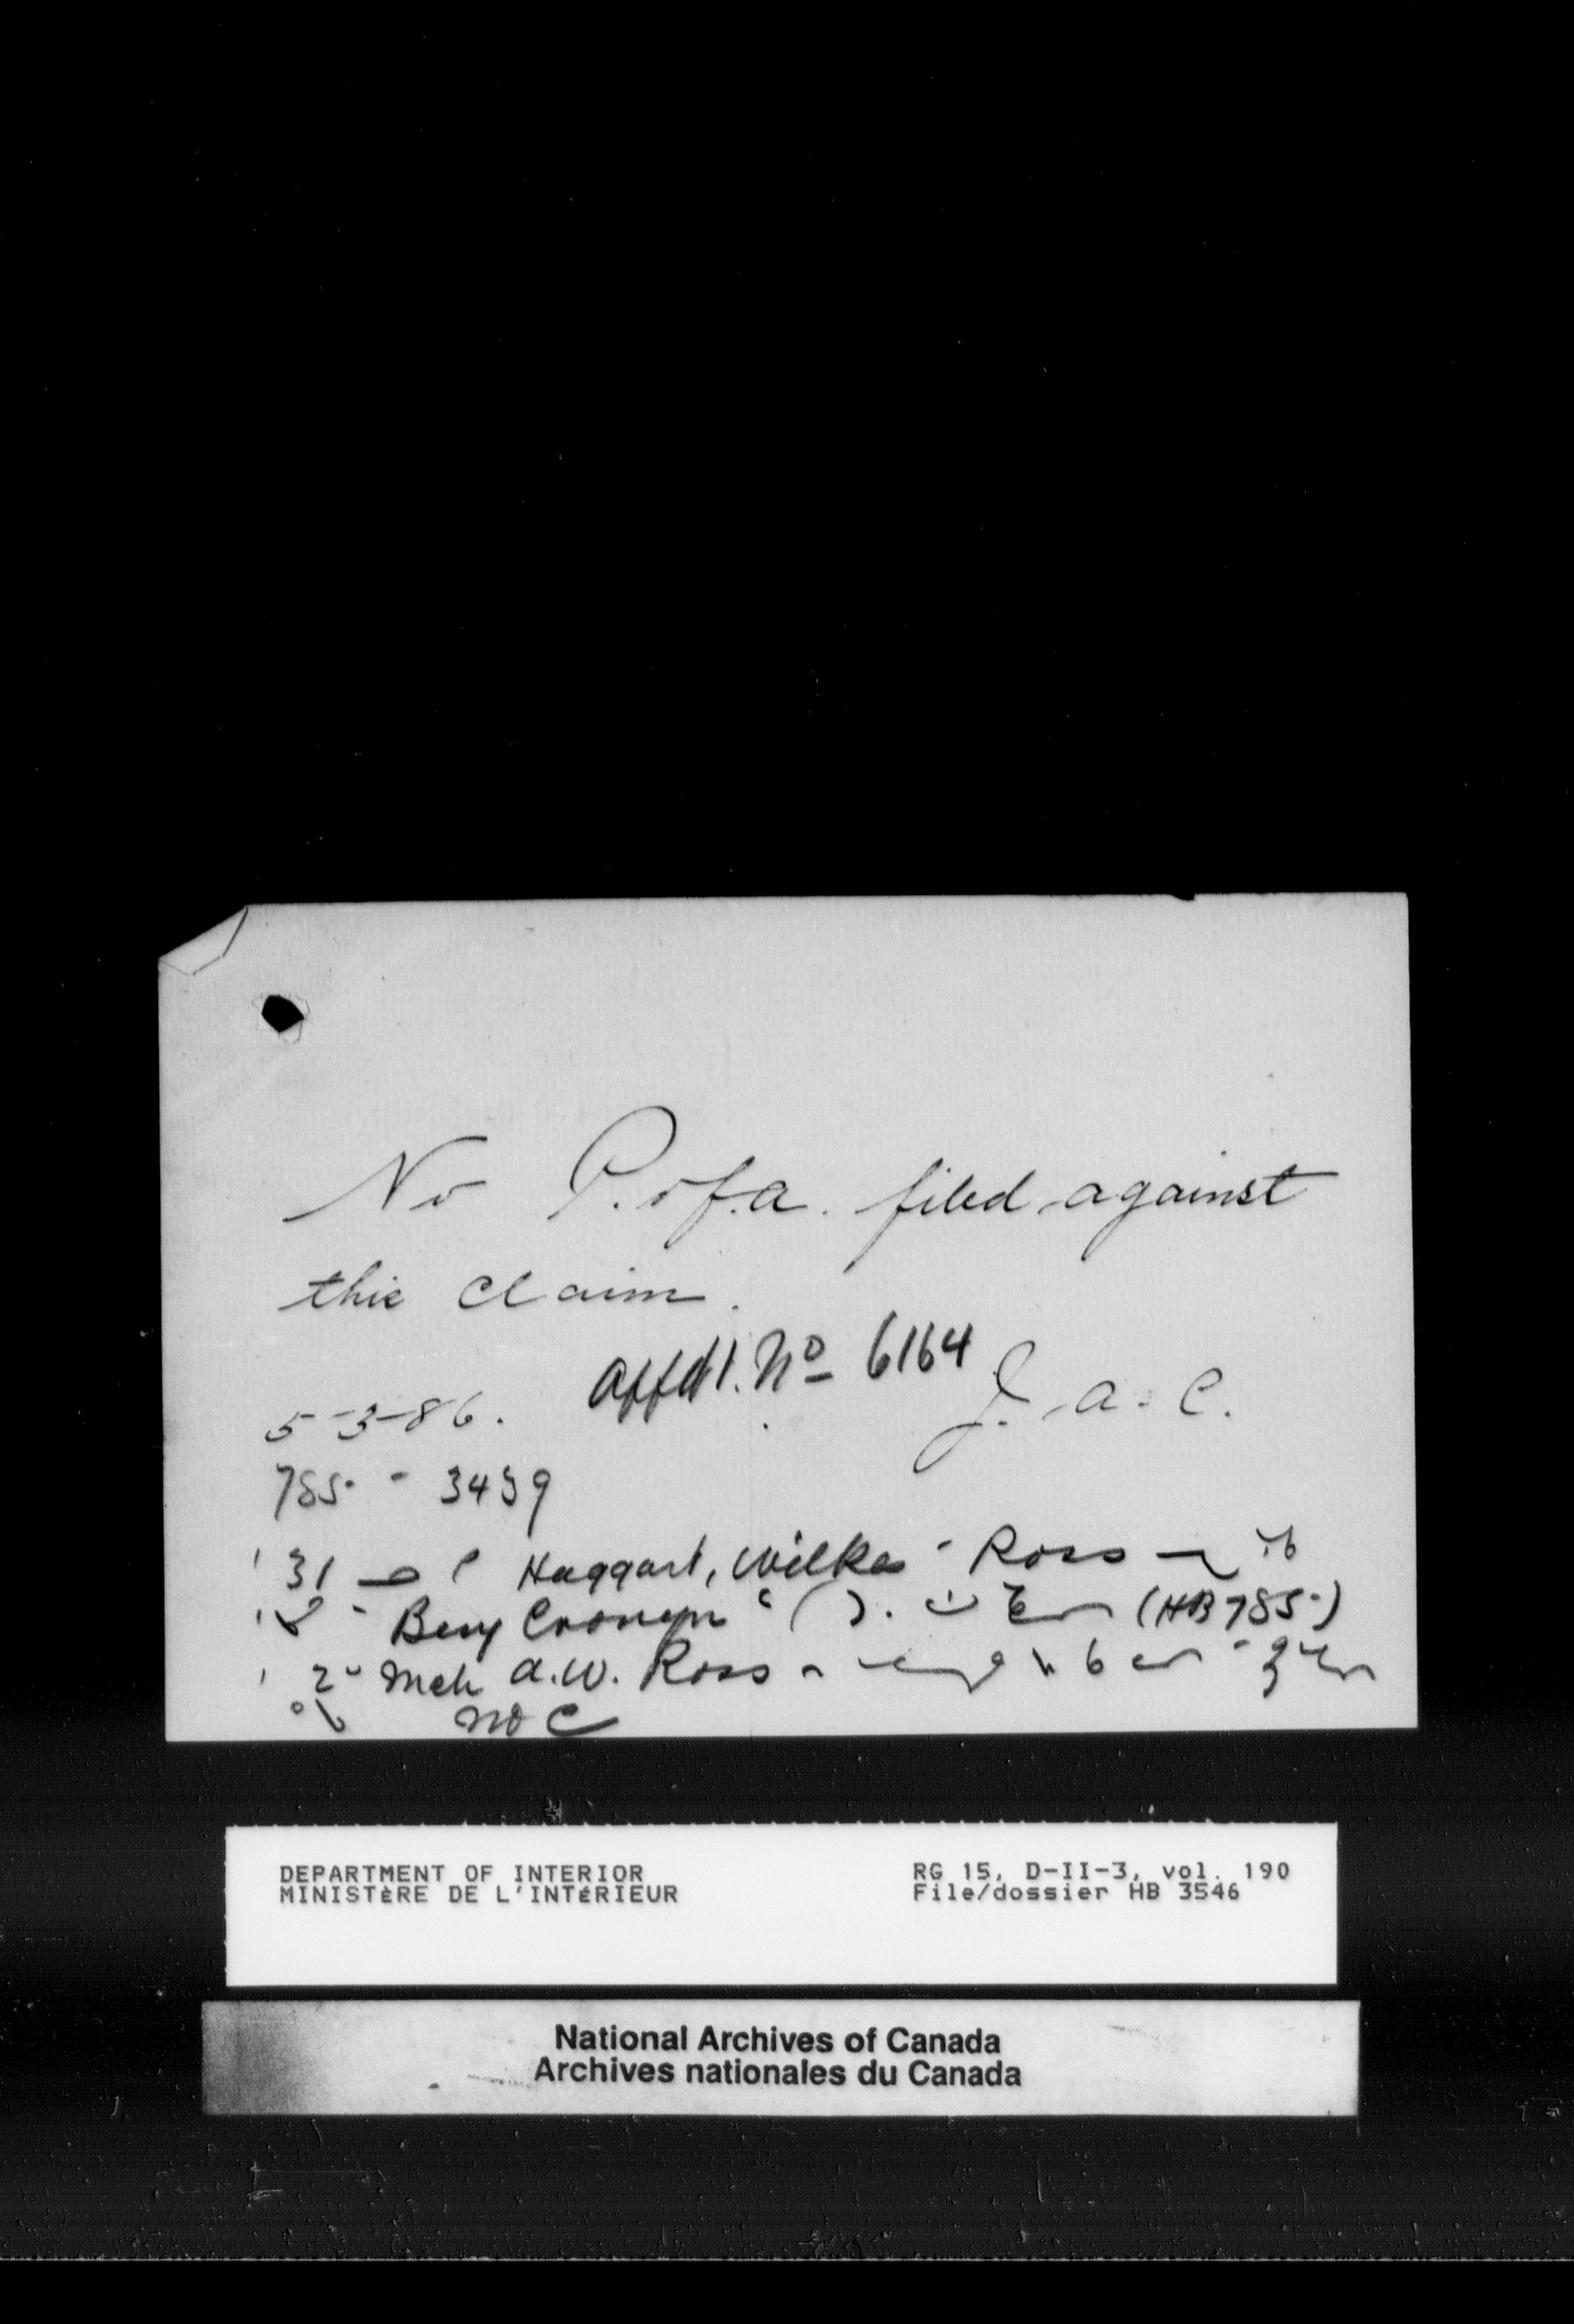 No P. of. a. filed against
this claim.
Affdt. No 6164
5-3-86. J. A. C.
785 - 3439
31 Haggart, Wilkes - Ross
Benj Cronyn (HB 785)
2 Mch A.W. Ross
DEPARTMENT OF INTERIOR
MINISTÈRE DE L'INTÉRIEUR
RG 15, D-II-3, vol. 190
File/dossier HB 3546
National Archives of Canada
Archives nationales du Canada